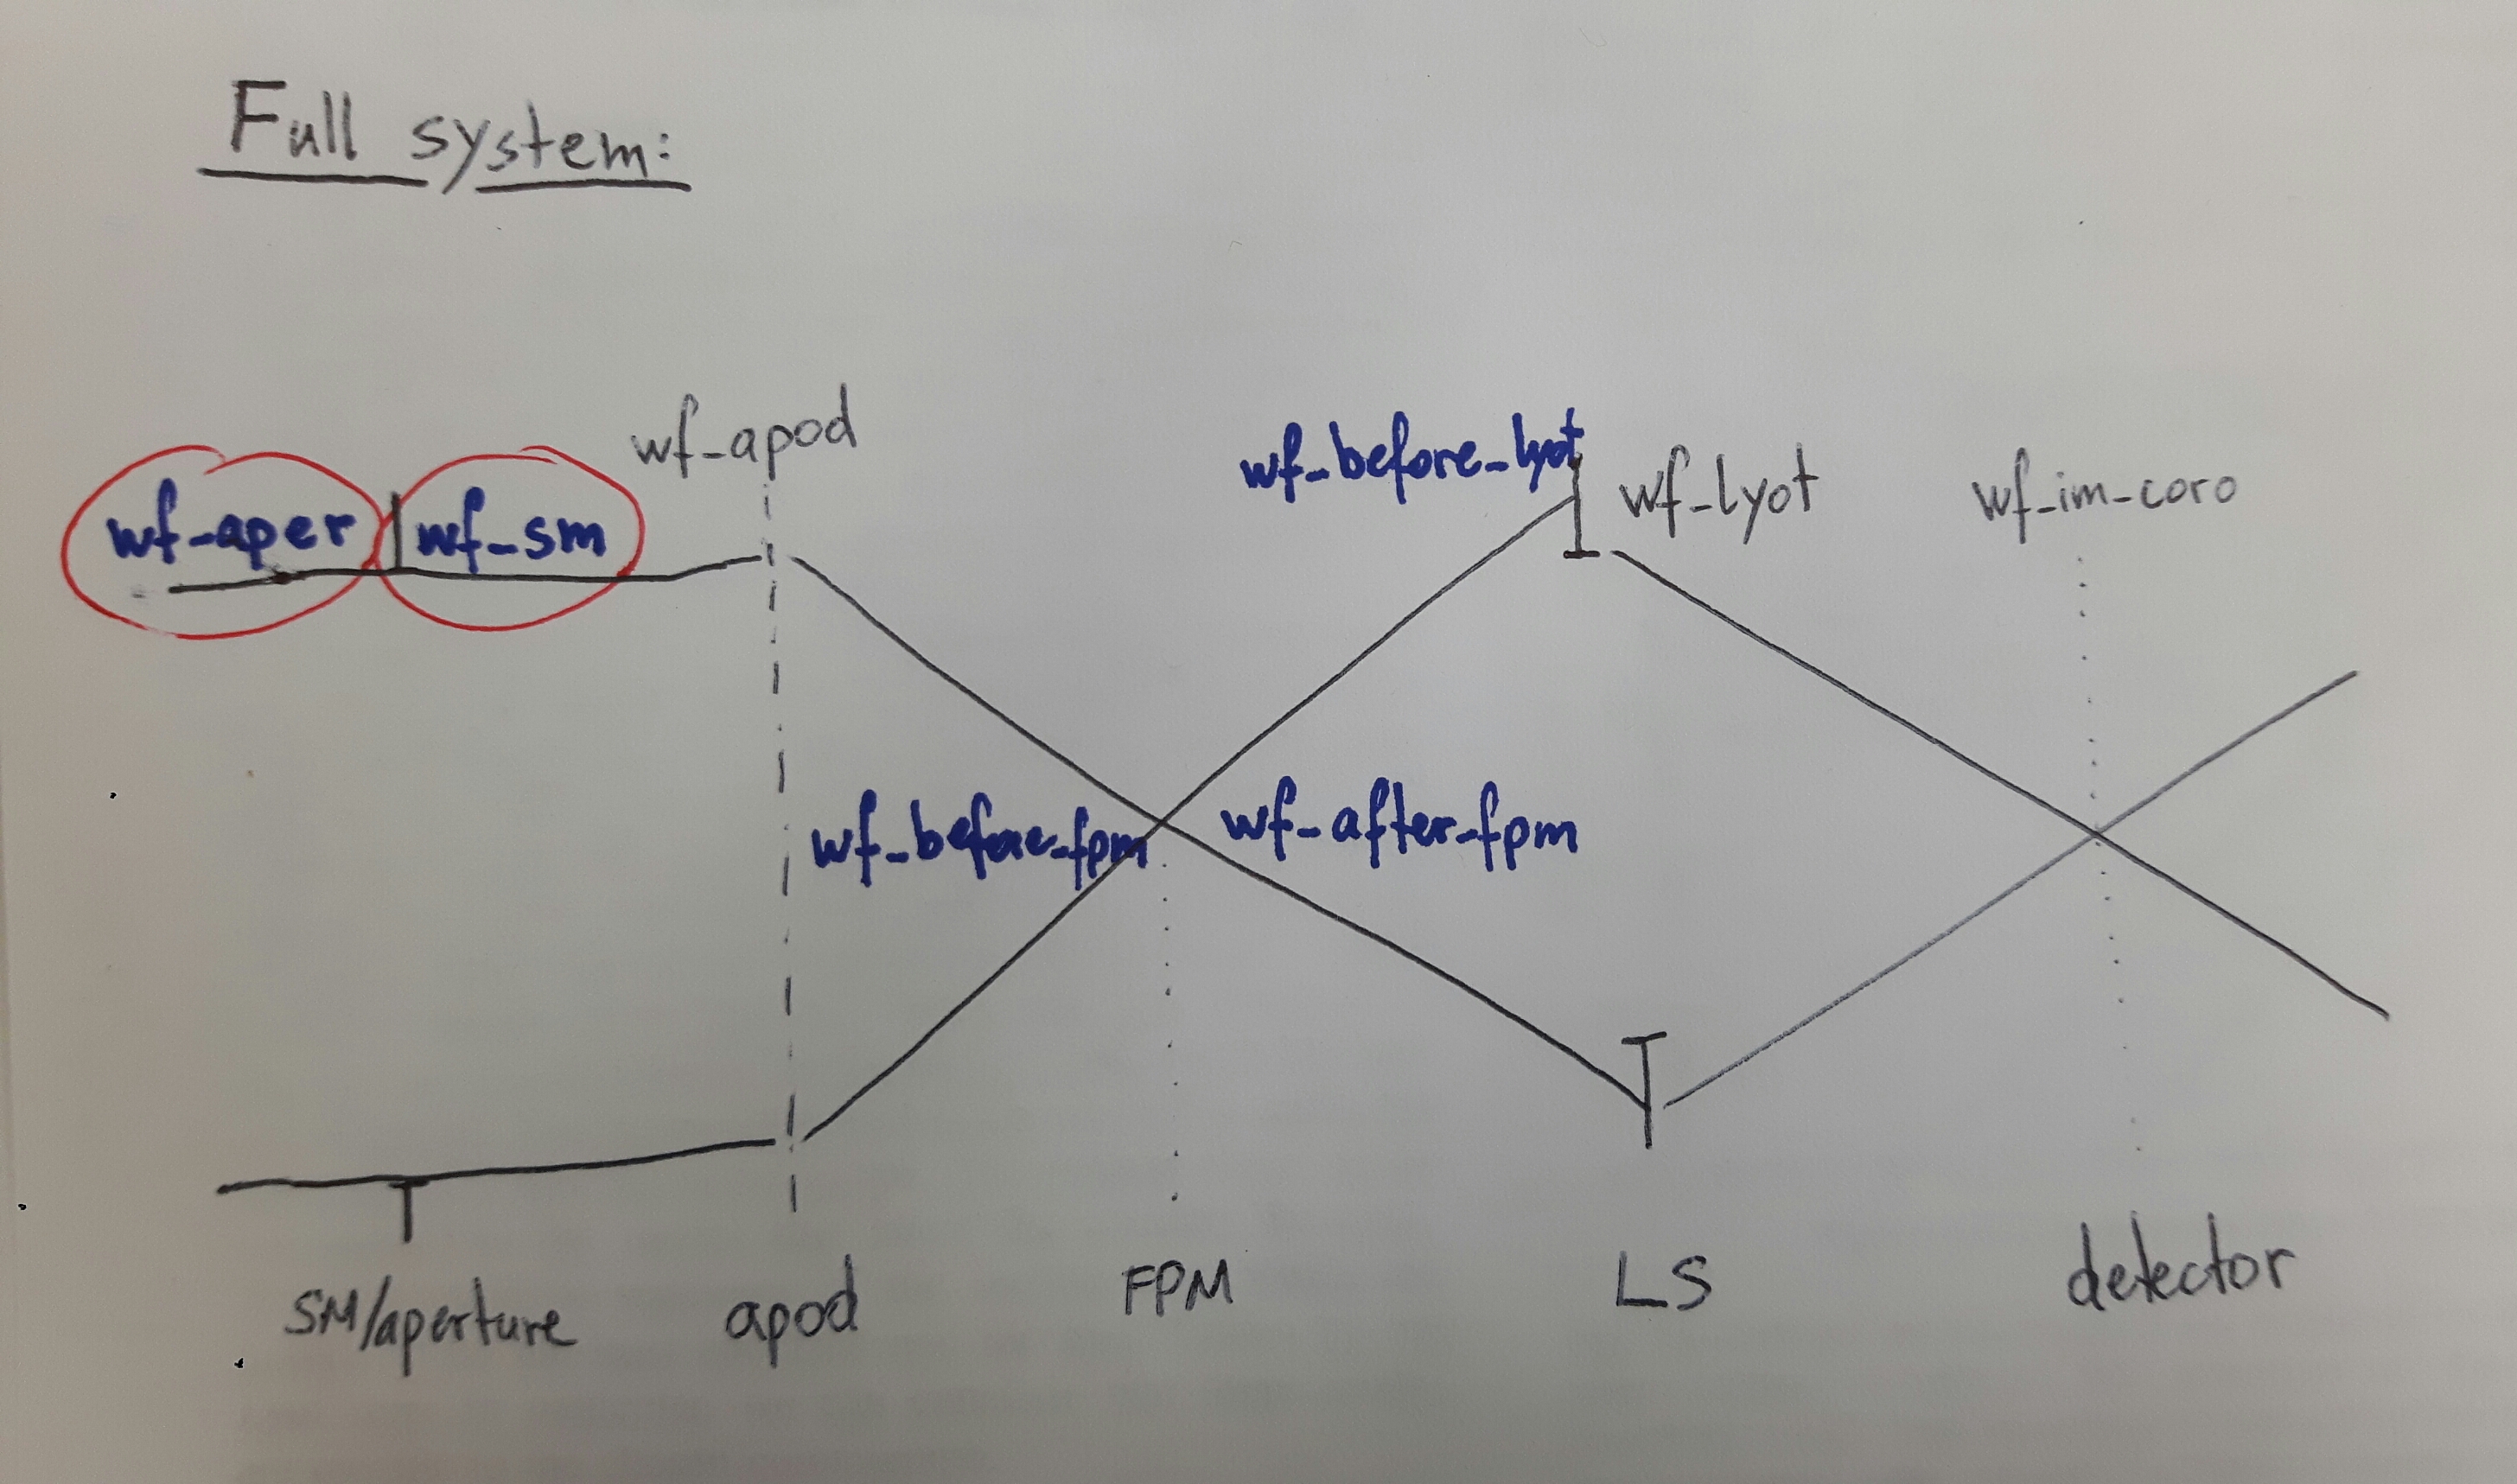 Full system:
wf-apod
wf-before-lyot
wf-aper
wf-sm
wf-lyot
wf-im-coro
wf-before-fpm
wf-after-fpm
SM/aperture
apod
FPM
LS
detector